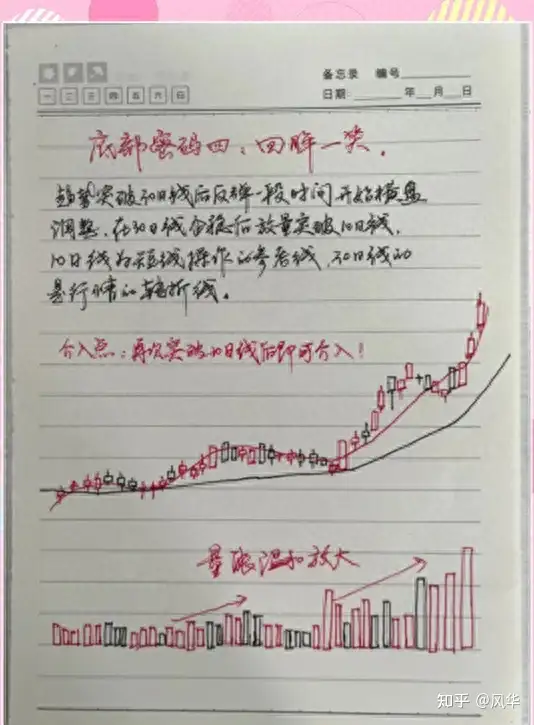 备忘录 编号
一 二 三 四 五 六 日
日期: 年 月 日
底部密码四、回眸一笑.
趋势突破30日线后反弹一段时间开始横盘
调整、在30日线企稳后放量突破10日线,
10日线为短线操作的参考线、30日线为
是行情的转折线。
介入点:再次突破10日线后即可介入!
量能温和放大
知乎 @风华